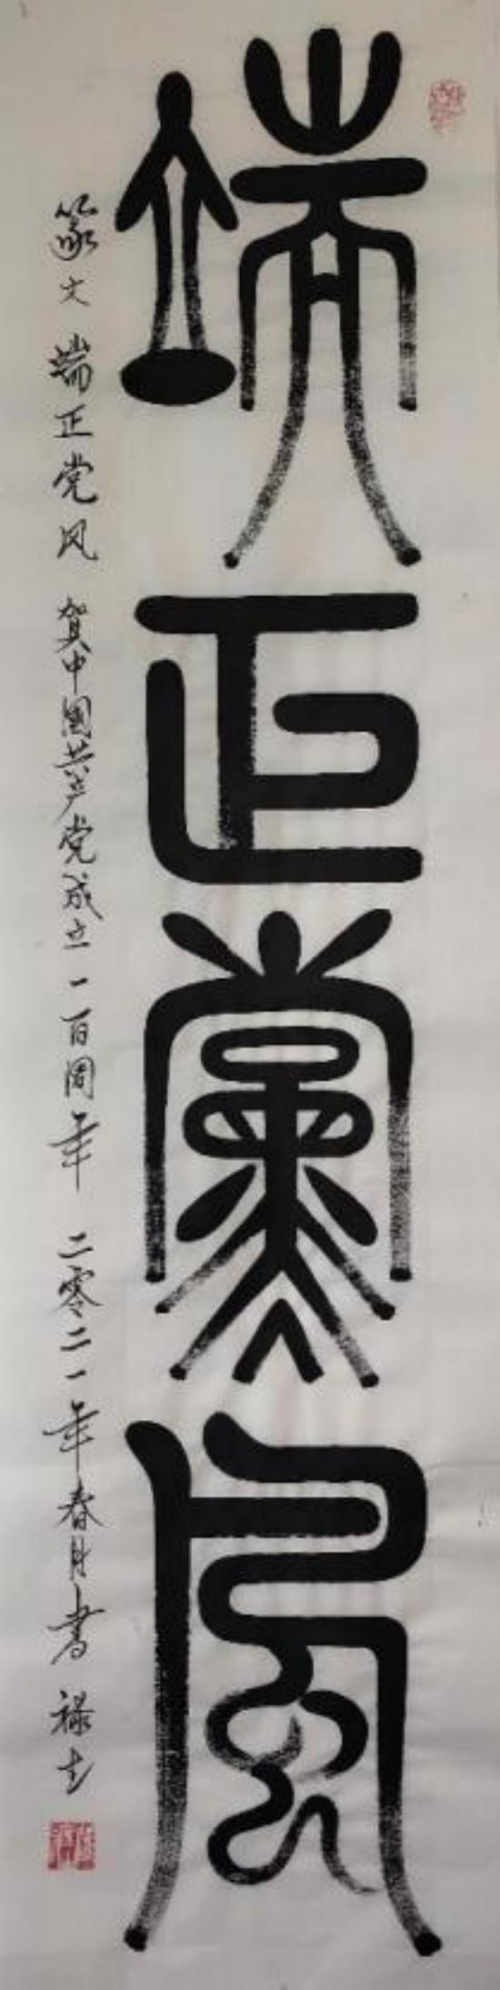 端正黨風
篆文 端正党风 贺中国共产党成立一百周年 二零二一年春月书 禄志